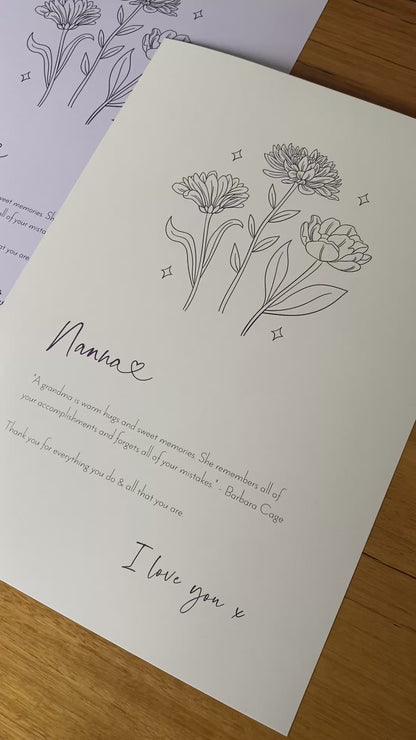 sweet memories. She
all of your mista
at you are
Nanna
"A grandma is warm hugs and sweet memories. She remembers all of
your accomplishments and forgets all of your mistakes." - Barbara Cage
Thank you for everything you do & all that you are.
I love you x